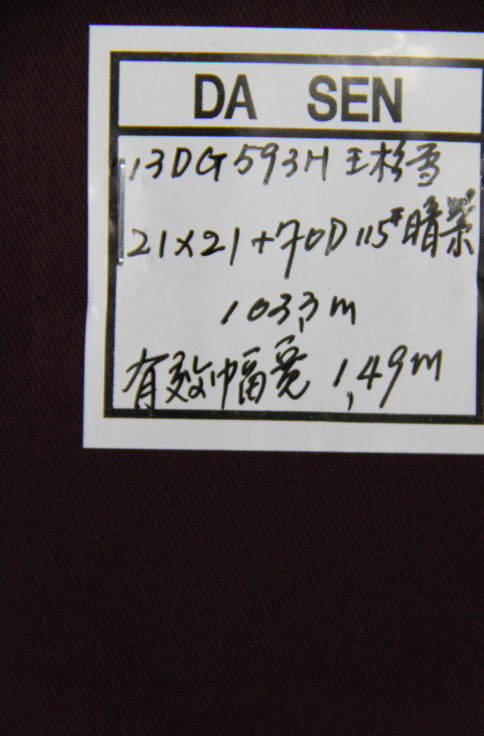 DA SEN
13DG593H 王杉雪
21×21+70D 115# 暗紫
103,3m
有效幅宽 1,49m